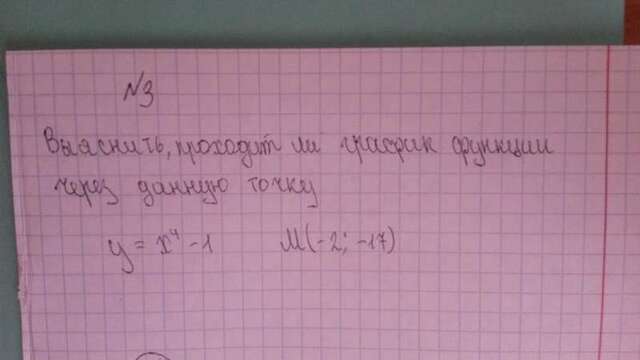 №3
Выяснить, проходит ли график функции
через данную точку
y = x⁴ - 1 M(-2; -17)